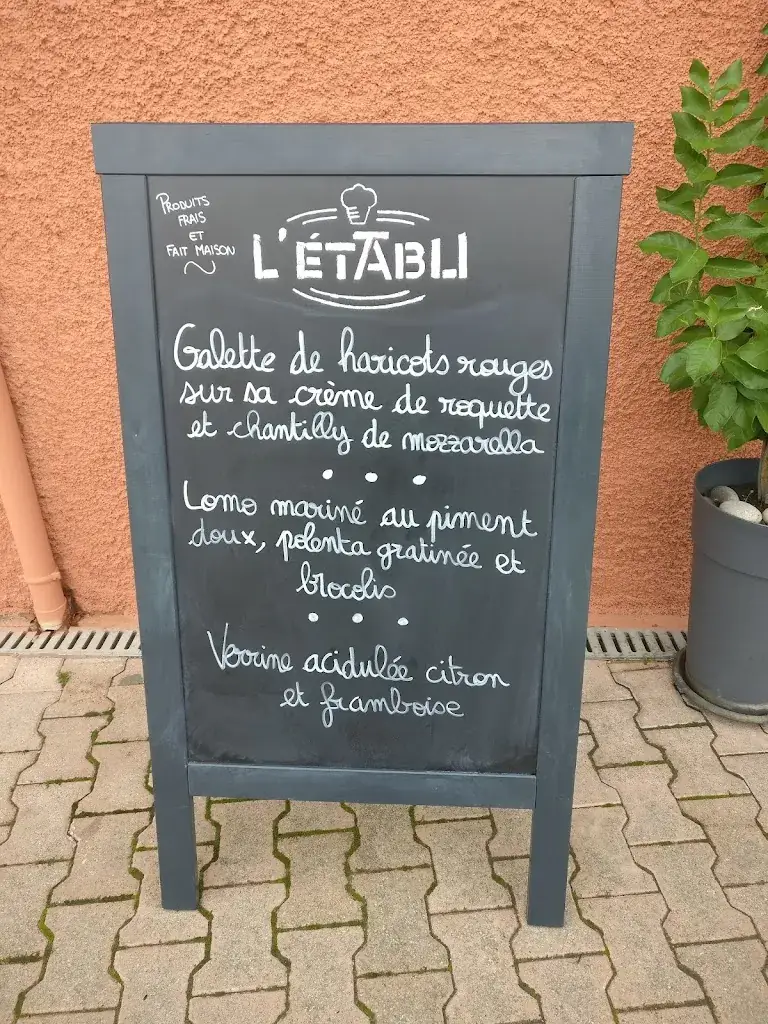 PRODUITS
FRAIS
ET
FAIT MAISON
L'ÉTABLI
Galette de haricots rouges
sur sa crème de roquette
et chantilly de mozzarella
Lomo mariné au piment
doux, polenta gratinée et
brocolis
Verrine acidulée citron
et framboise